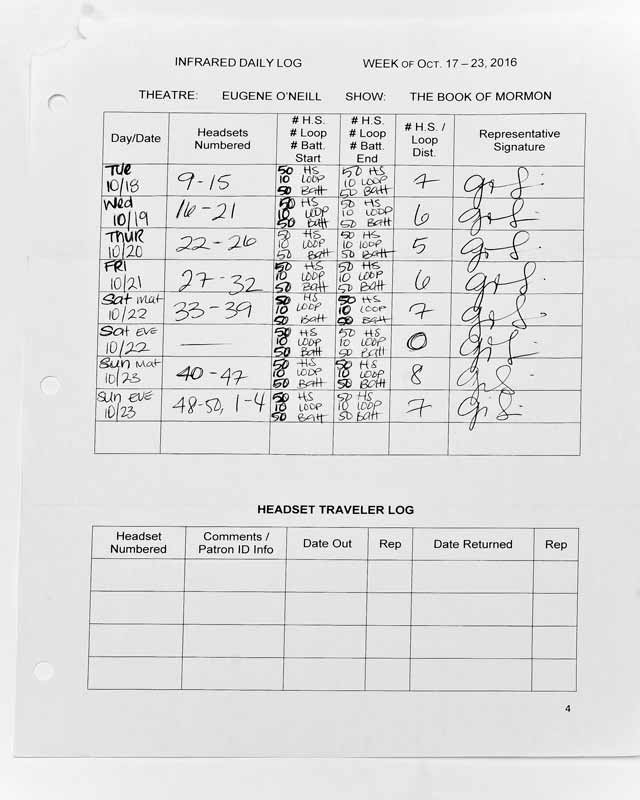 INFRARED DAILY LOG WEEK OF OCT. 17 – 23, 2016
THEATRE: EUGENE O'NEILL SHOW: THE BOOK OF MORMON
Day/Date Headsets Numbered # H.S. # Loop # Batt. Start # H.S. # Loop # Batt. End # H.S. / Loop Dist. Representative Signature
TUE 10/18 9-15 50 HS 10 LOOP 50 Batt 50 HS 10 LOOP 50 Batt 7
Wed 10/19 16-21 50 HS 10 LOOP 50 Batt 50 HS 10 LOOP 50 Batt 6
THUR 10/20 22-26 50 HS 10 LOOP 50 Batt 50 HS 10 LOOP 50 Batt 5
FRI 10/21 27-32 50 HS 10 LOOP 50 Batt 50 HS 10 LOOP 50 Batt 6
Sat Mat 10/22 33-39 50 HS 10 LOOP 50 Batt 50 HS 10 LOOP 50 Batt 7
Sat EVE 10/22 — 50 HS 10 LOOP 50 Batt 50 HS 10 LOOP 50 Batt 0
Sun Mat 10/23 40-47 50 HS 10 LOOP 50 Batt 50 HS 10 LOOP 50 Batt 8
Sun EVE 10/23 48-50, 1-4 50 HS 10 LOOP 50 Batt 50 HS 10 LOOP 50 Batt 7
HEADSET TRAVELER LOG
Headset Numbered Comments / Patron ID Info Date Out Rep Date Returned Rep
4